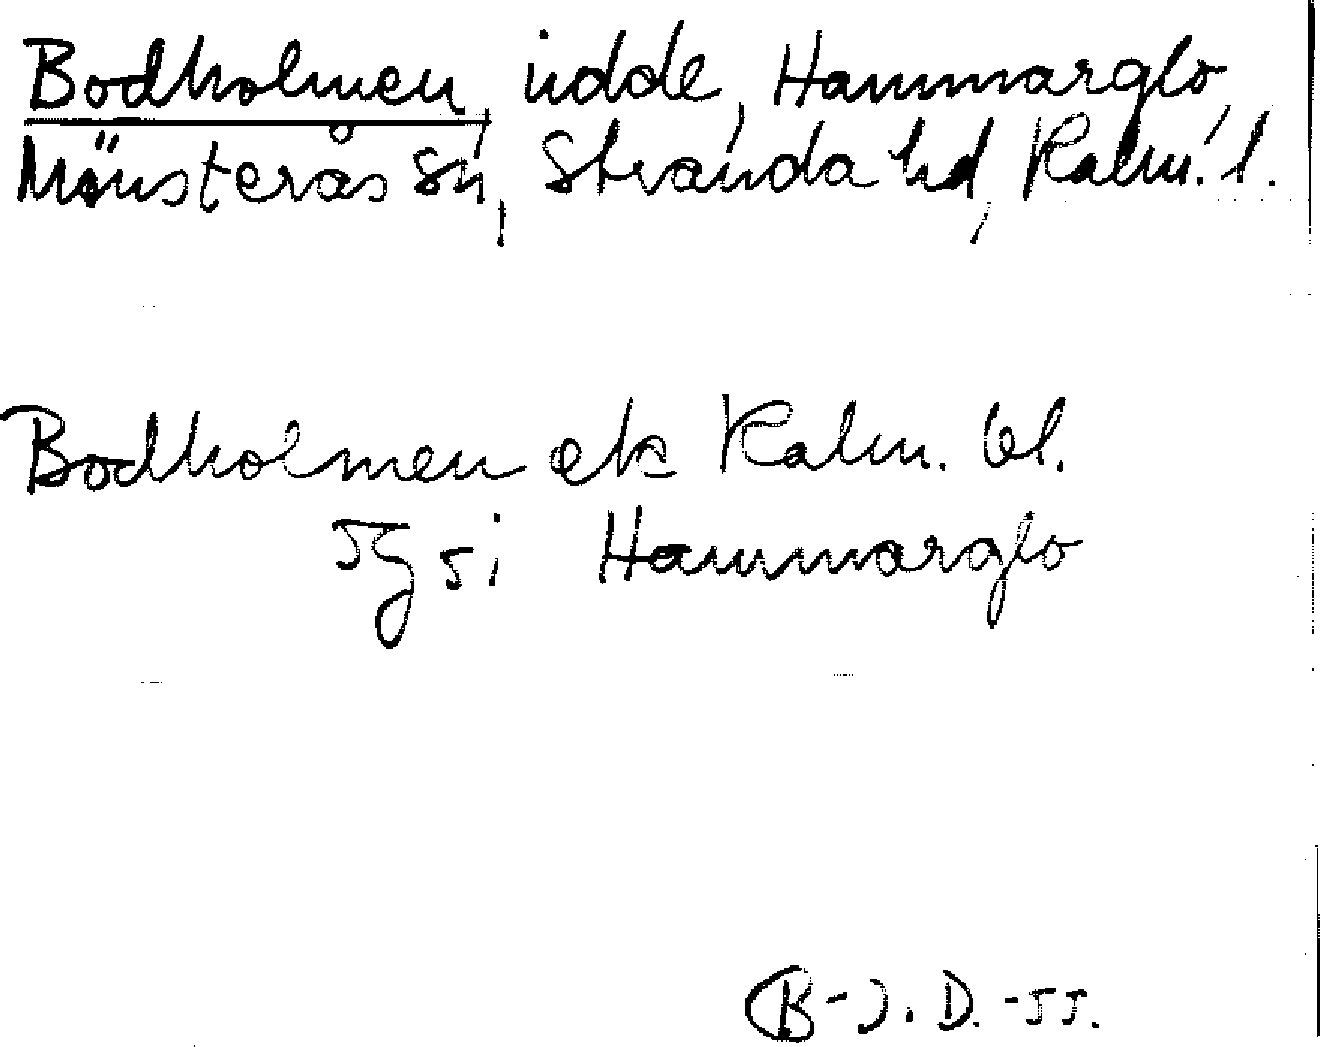 Bodholmen, udde, Hammarglo,
Mönsterås sn, Stranda hd, Kalm. l.
Bodholmen ek Kalm. bl.
5g5i Hammarglo
B-J. D. -55.